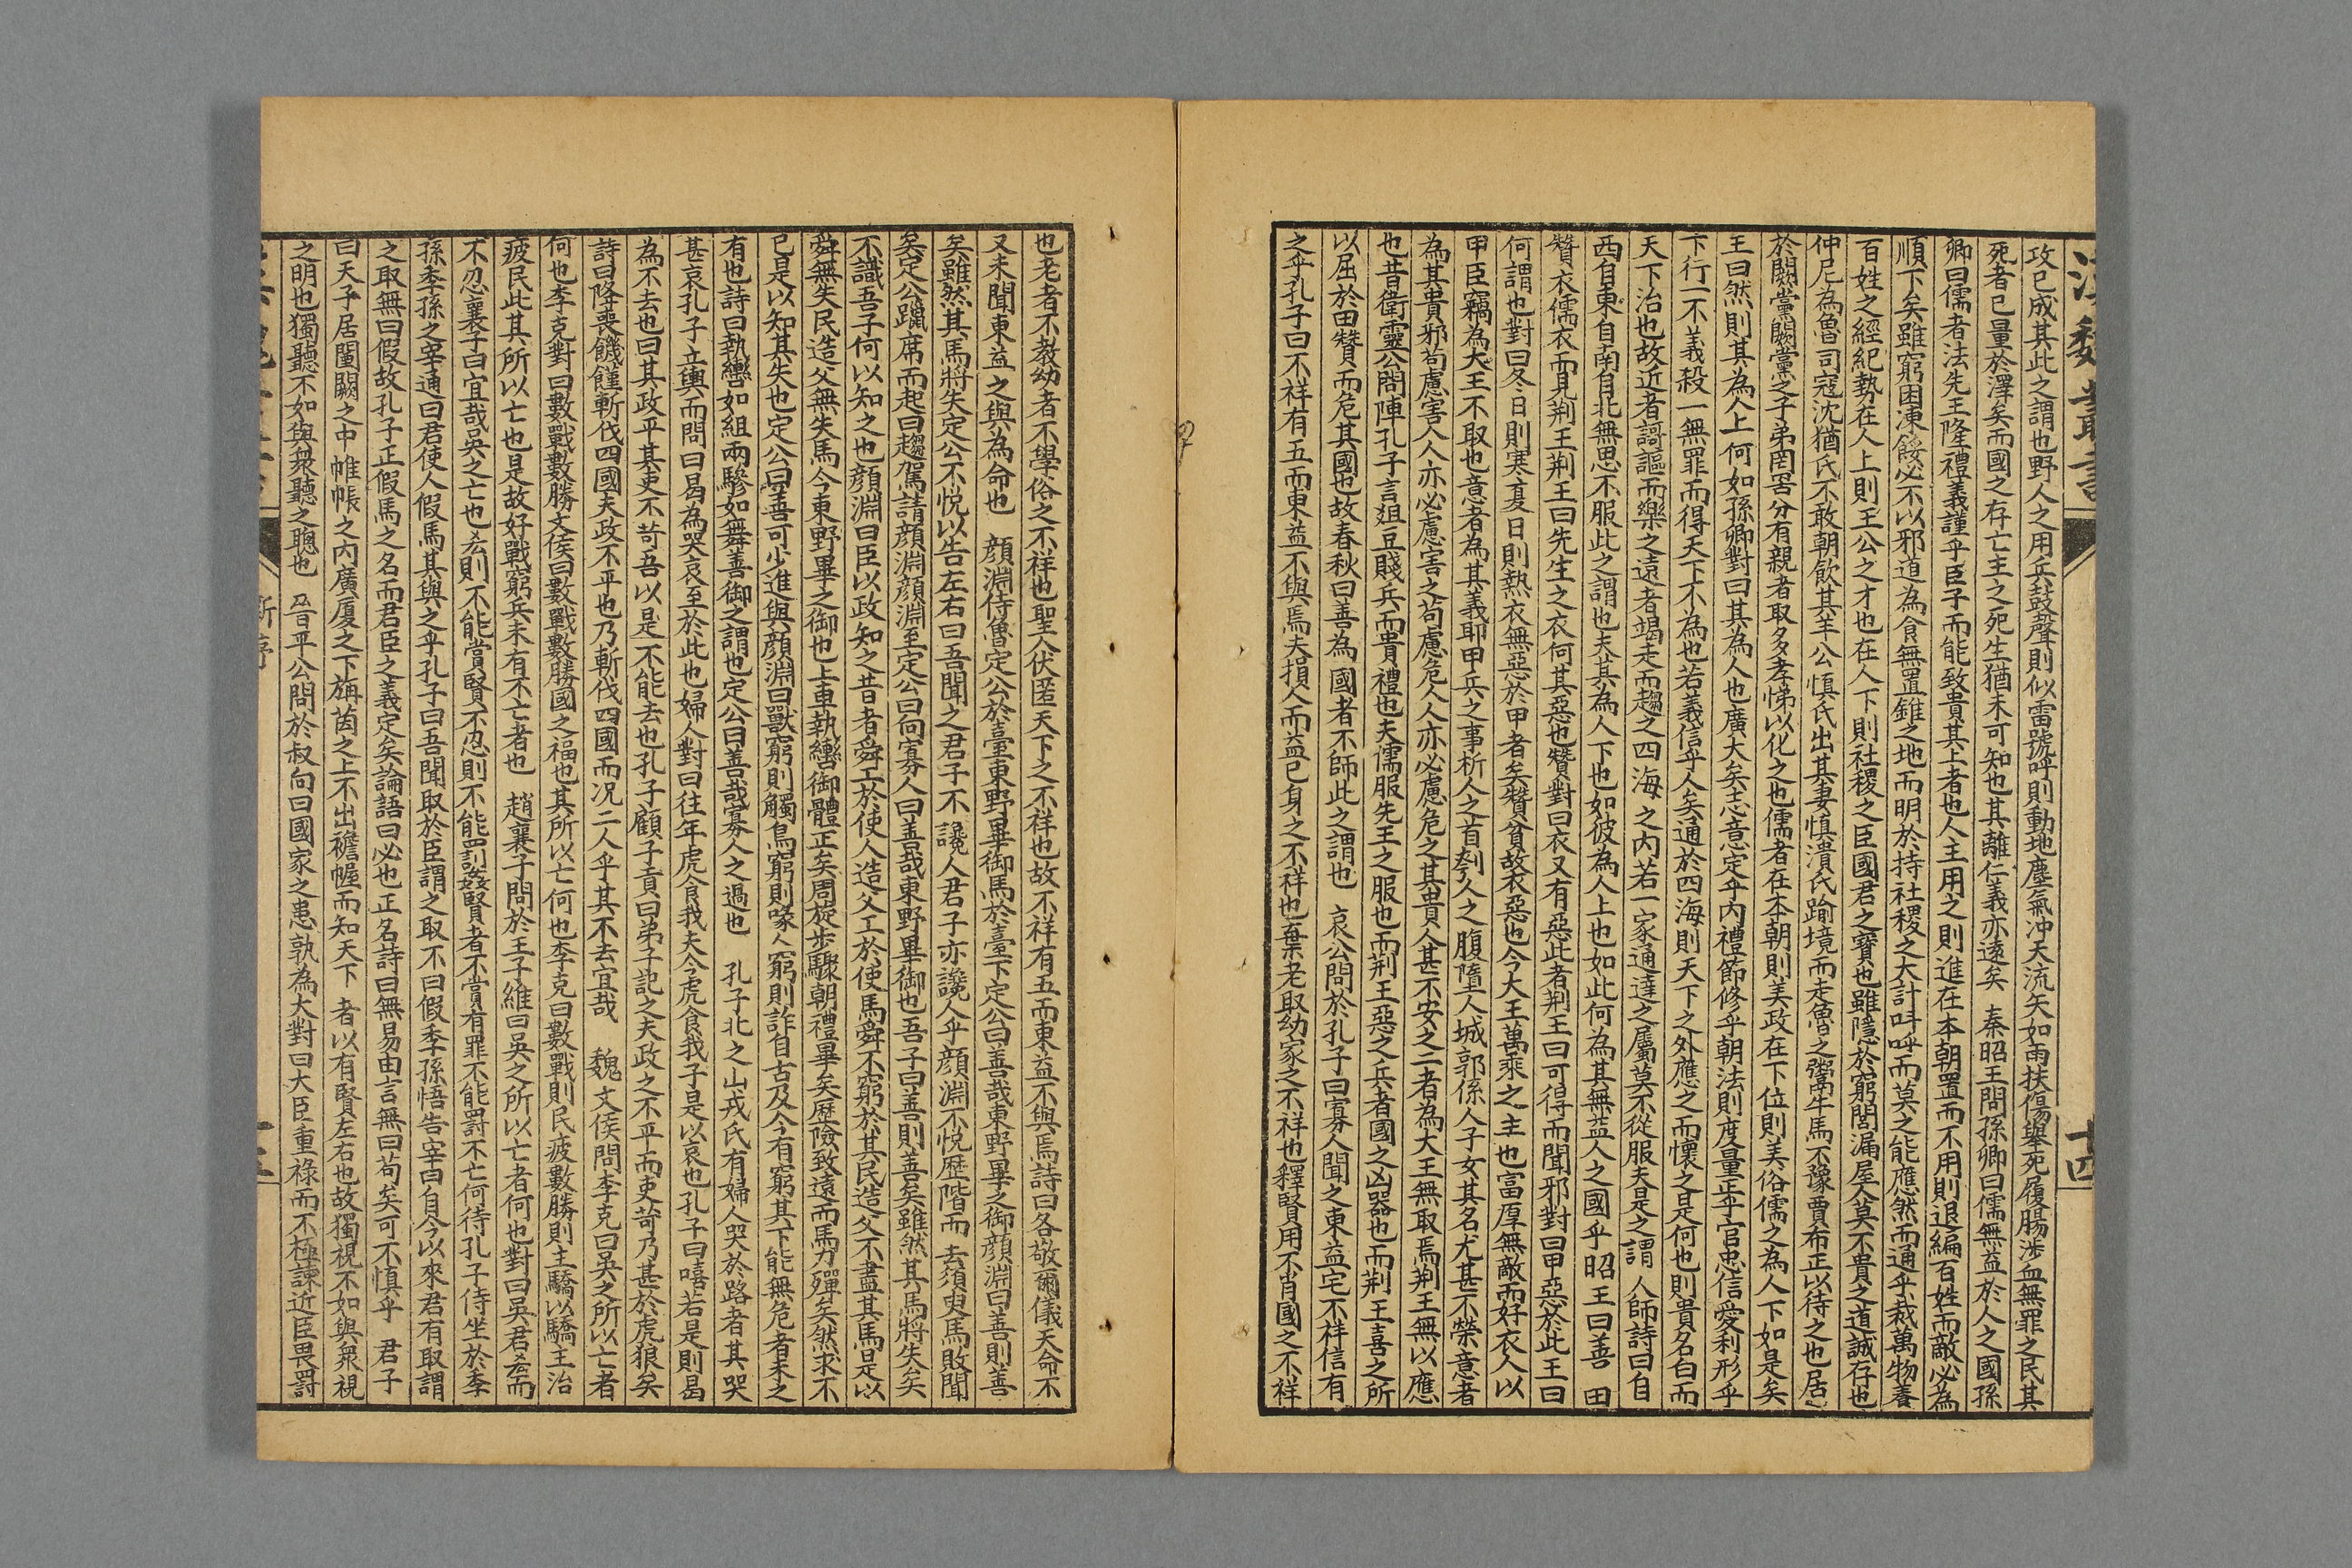 漢魏叢書
十四
攻已成其此之謂也野人之用兵鼓聲則似雷號呼則動地塵氣沖天流矢如雨扶傷舉死履腸涉血無罪之民其
死者已量於澤矣而國之存亡主之死生猶未可知也其離仁義亦遠矣　秦昭王問孫卿曰儒無益於人之國孫
卿曰儒者法先王隆禮義謹乎臣子而能致貴其上者也人主用之則進在本朝置而不用則退編百姓而敵必為
順下矣雖窮困凍餧必不以邪道為食無置錐之地而明於持社稷之大計呌呼而莫之能應然而通乎裁萬物養
百姓之經紀勢在人上則王公之才也在人下則社稷之臣國君之寶也雖隱於窮閻漏屋人莫不貴之道誠存也
仲尼為魯司寇沈猶氏不敢朝飲其羊公慎氏出其妻慎潰氏踰境而走魯之鬻牛馬不豫賈布正以待之也居
於闕黨闕黨之子弟罔罟分有親者取多孝悌以化之也儒者在本朝則美政在下位則美俗儒之為人下如是矣
王曰然則其為人上何如孫卿對曰其為人也廣大矣志意定乎內禮節修乎朝法則度量正乎官忠信愛利形乎
下行一不義殺一無罪而得天下不為也若義信乎人矣通於四海則天下之外應之而懷之是何也則貴名白而
天下治也故近者謌謳而樂之遠者竭走而趨之四海之內若一家通達之屬莫不從服夫是之謂人師詩曰自
西自東自南自北無思不服此之謂也夫其為人下也如彼為人上也如此何為其無益人之國乎昭王曰善　田
贊衣儒衣而見荆王荆王曰先生之衣何其惡也贊對曰衣又有惡此者荆王曰可得而聞邪對曰甲惡於此王曰
何謂也對曰冬日則寒夏日則熱衣無惡於甲者矣贊貧故衣惡也今大王萬乘之主也富厚無敵而好衣人以
甲臣竊為大王不取也意者為其義耶甲兵之事析人之首刳人之腹墮人城郭係人子女其名尤甚不榮意者
為其貴邪苟慮害人人亦必慮害之苟慮危人人亦必慮危之其貴人甚不安之二者為大王無取焉荆王無以應
也昔衛靈公問陣孔子言爼豆賤兵而貴禮也夫儒服先王之服也而荆王惡之兵者國之凶器也而荆王喜之所
以屈於田贊而危其國也故春秋曰善為國者不師此之謂也　哀公問於孔子曰寡人聞之東益宅不祥信有
之乎孔子曰不祥有五而東益不與焉夫損人而益己身之不祥也棄老取幼家之不祥也釋賢用不肖國之不祥
也老者不教幼者不學俗之不祥也聖人伏匿天下之不祥也故不祥有五而東益不與焉詩曰各敬爾儀天命不
又未聞東益之與為命也　顏淵侍魯定公於臺東野畢御馬於臺下定公曰善哉東野畢之御顏淵曰善則善
矣雖然其馬將失定公不悅以告左右曰吾聞之君子不讒人君子亦讒人乎顏淵不悅歷階而去須臾馬敗聞
矣定公躐席而起曰趨駕請顏淵顏淵至定公曰向寡人曰善哉東野畢御也吾子曰善則善矣雖然其馬將失矣
不識吾子何以知之也顏淵曰臣以政知之昔者舜工於使人造父工於使馬舜不窮於其民造父不盡其馬是以
舜無失民造父無失馬今東野畢之御也上車執轡御體正矣周旋步驟朝禮畢矣歷險致遠而馬力殫矣然求不
已是以知其失也定公曰善可少進與顏淵曰獸窮則觸鳥窮則喙人窮則詐自古及今有窮其下能無危者未之
有也詩曰執轡如組兩驂如舞善御之謂也定公曰善哉寡人之過也　孔子北之山戎氏有婦人哭於路者其哭
甚哀孔子立輿而問曰曷為哭哀至於此也婦人對曰往年虎食我夫今虎食我子是以哀也孔子曰嘻若是則曷
為不去也曰其政平其吏不苛吾以是不能去也孔子顧子貢曰弟子記之夫政之不平而吏苛乃甚於虎狼矣
詩曰降喪饑饉斬伐四國夫政不平也乃斬伐四國而况二人乎其不去宜哉　魏文侯問李克曰吳之所以亡者
何也李克對曰數戰數勝文侯曰數戰數勝國之福也其所以亡何也李克曰數戰則民疲數勝則主驕以驕主治
疲民此其所以亡也是故好戰窮兵未有不亡者也　趙襄子問於王子維曰吳之所以亡者何也對曰吳君𠫤而
不忍襄子曰宜哉吳之亡也𠫤則不能賞賢不忍則不能罰姦賢者不賞有罪不能罰不亡何待孔子侍坐於季
孫季孫之宰通曰君使人假馬其與之乎孔子曰吾聞取於臣謂之取不曰假季孫悟告宰曰自今以來君有取謂
之取無曰假故孔子正假馬之名而君臣之義定矣論語曰必也正名詩曰無易由言無曰苟矣可不慎乎　君子
曰天子居闉闕之中帷帳之內廣厦之下旃茵之上不出襜幄而知天下者以有賢左右也故獨視不如與衆視
之明也獨聽不如與衆聽之聰也　晉平公問於叔向曰國家之患孰為大對曰大臣重祿而不極諫近臣畏罰
新序